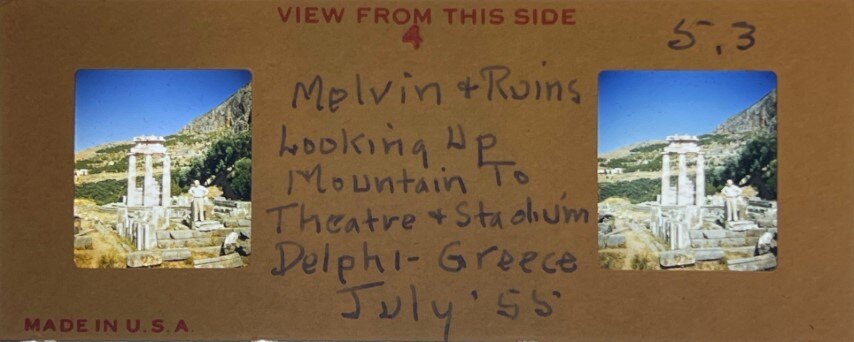 VIEW FROM THIS SIDE
4
5.3
Melvin + Ruins
Looking Up
Mountain To
Theatre + Stadium
Delphi - Greece
July '55
MADE IN U.S.A.